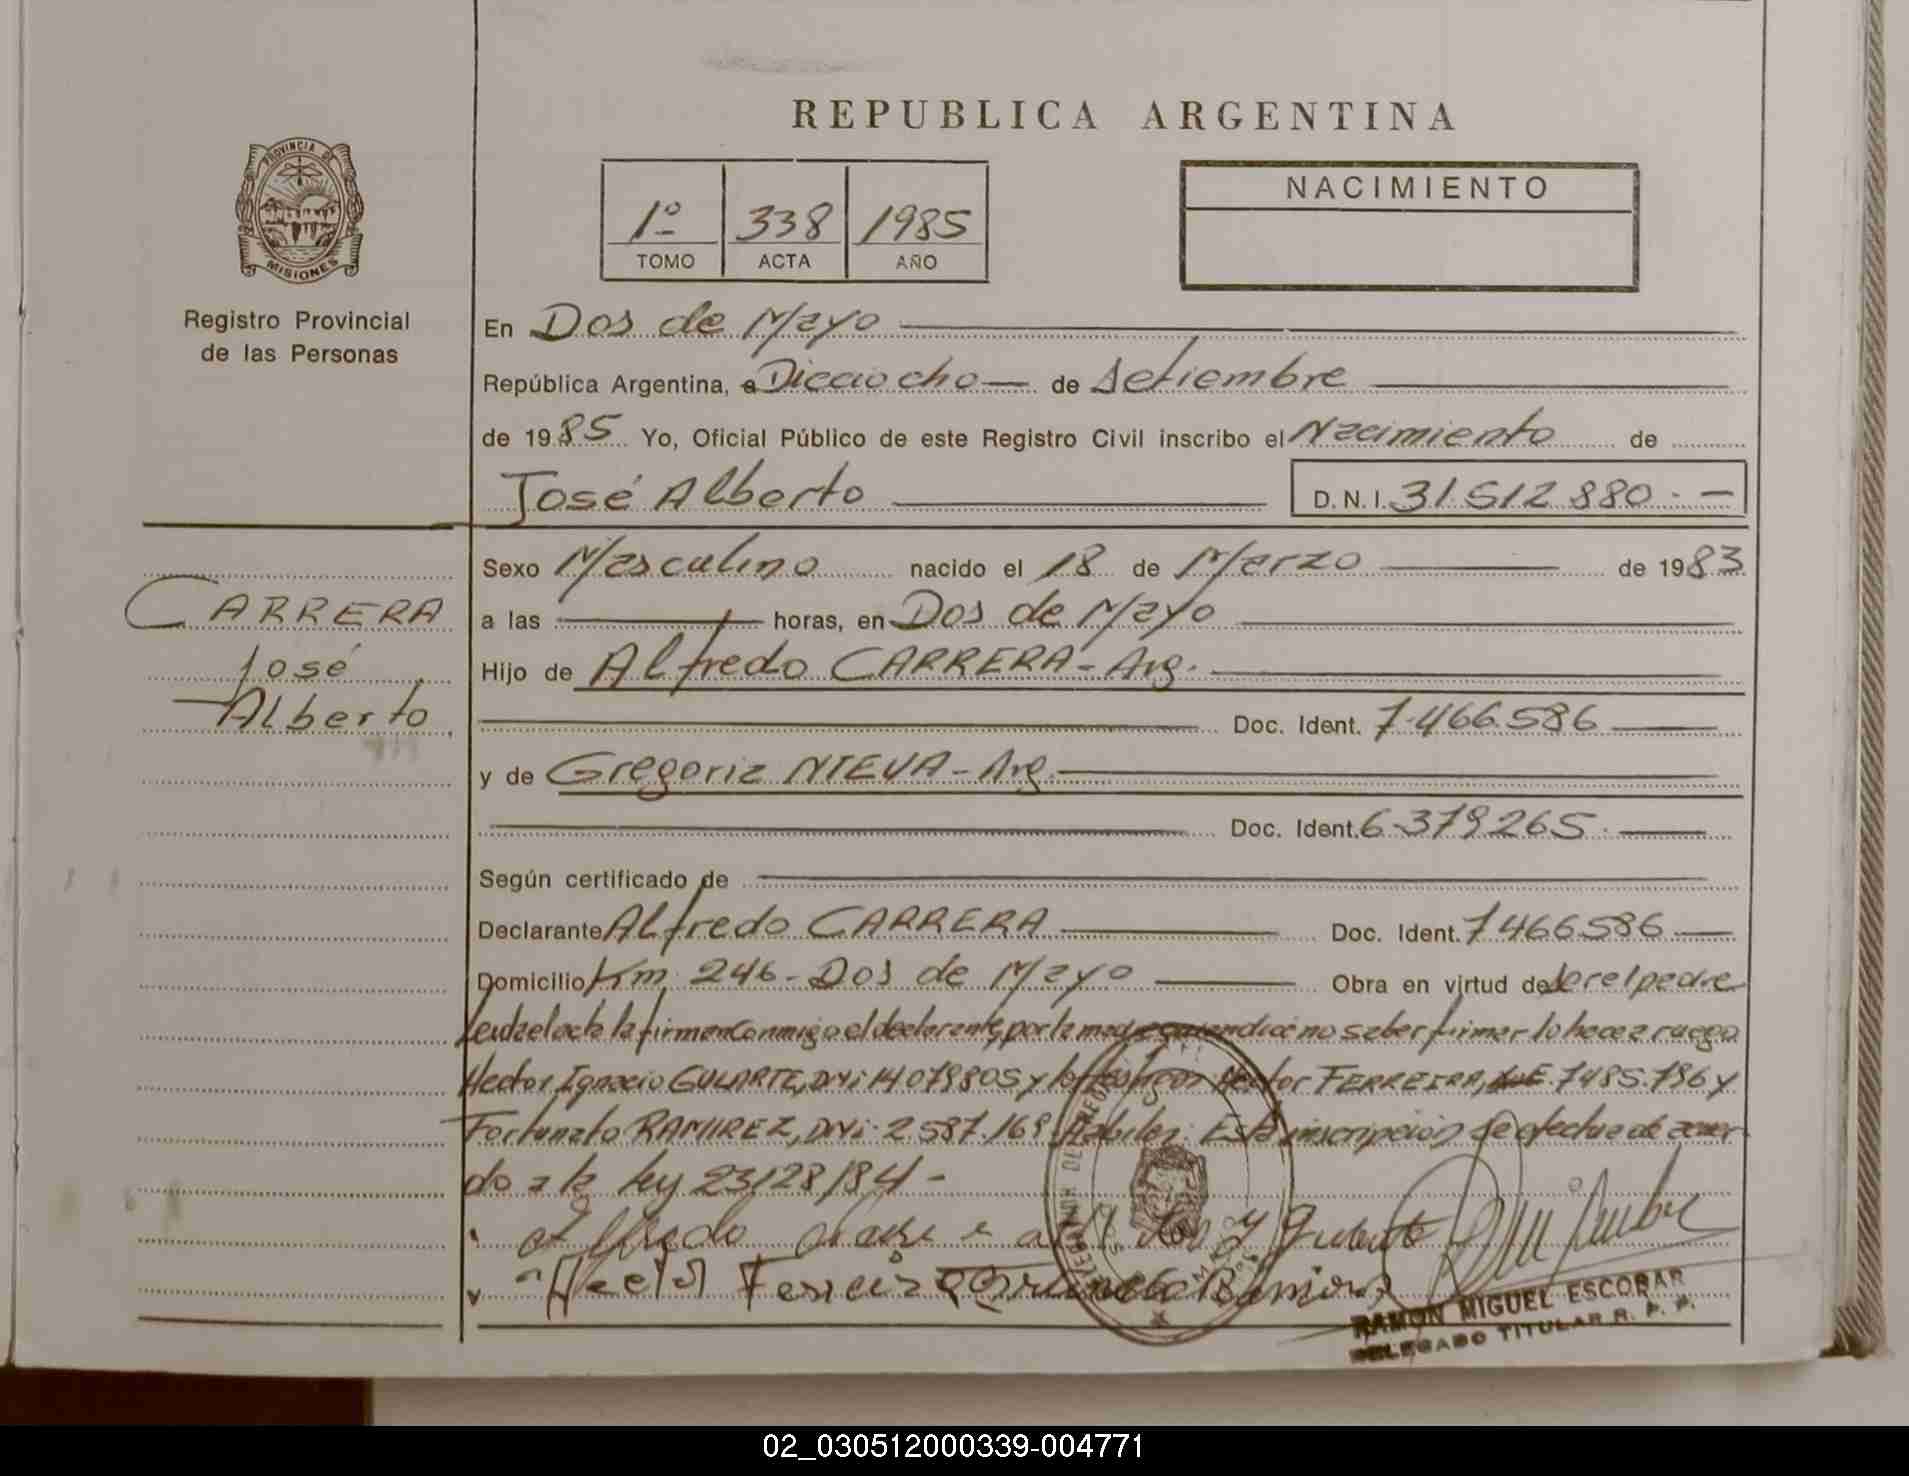 REPUBLICA ARGENTINA
PROVINCIA DE
MISIONES
Registro Provincial
de las Personas
1º 338 1985
TOMO ACTA AÑO
NACIMIENTO
En Dos de Mayo
República Argentina, a Dieciocho de Setiembre
de 1985 Yo, Oficial Público de este Registro Civil inscribo el Nacimiento de
José Alberto D.N.I. 31.512.880.-
CARRERA
José
Alberto
Sexo Masculino nacido el 18 de Marzo de 1983
a las horas, en Dos de Mayo
Hijo de Alfredo CARRERA - Arg.
Doc. Ident. 7.466.586
y de Gregoria NIEVA - Arg.
Doc. Ident. 6.379.265.
Según certificado de
Declarante Alfredo CARRERA Doc. Ident. 7.466.586
Domicilio Km. 246 - Dos de Mayo Obra en virtud de ser el padre
Leida el acta la firman conmigo el declarante, por la madre quien dice no saber firmar lo hace a ruego
Hector Ignacio GULARTE, DNI: 14.079805 y los testigos Hector FERREIRA, 7.485.786 y
Fortunato RAMIREZ, DNI: 2.587.169. Habiles. Esta inscripción se efectua de acuer
do a la ley 23128/84 -
Hector Ferreira Ramires
RAMON MIGUEL ESCOBAR
DELEGADO TITULAR R. P. P.
02_030512000339-004771